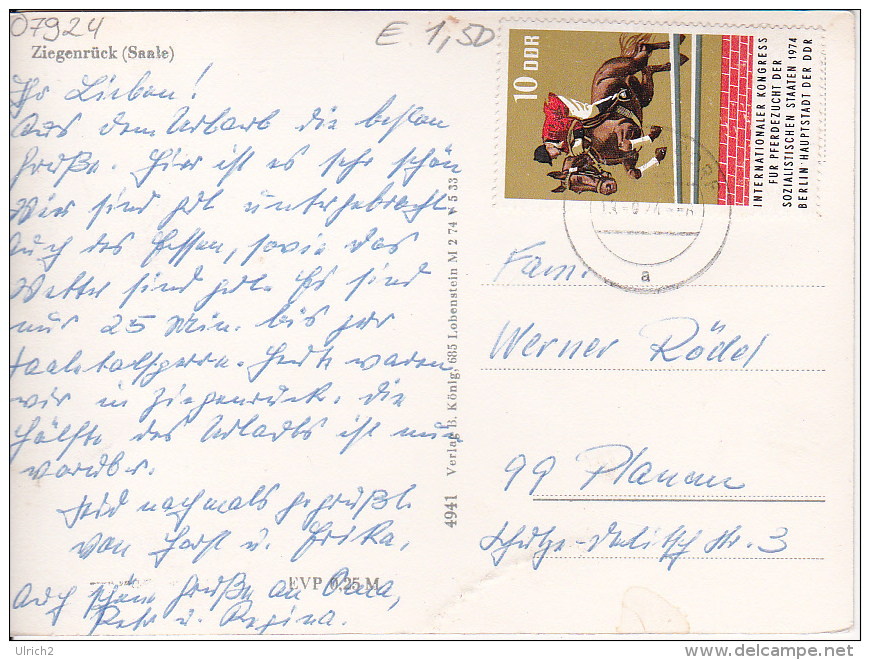 07924
E 1,50
Ziegenrück (Saale)
Ihr Lieben!
Aus dem Urlaub die besten
Grüße. Hier ist es sehr schön
Wir sind gut untergebracht
Auch das Essen, sowie das
Wetter sind gut. Es sind
nur 25 Min. bis zur
Saaletalsperre. Heute waren
wir in Ziegenrück. die
Hälfte des Urlaubs ist nun
vorüber.
Seid nochmals gegrüßt.
von Horst u. Erika,
Auch schöne Grüße an Oma,
u. Regina.
EVP 0,25 M
4941 Verlag B. König, 685 Lobenstein M 2 74 V 5 33
10 DDR
INTERNATIONALER KONGRESS
FÜR PFERDEZUCHT DER
SOZIALISTISCHEN STAATEN 1974
BERLIN · HAUPTSTADT DER DDR
a
Fam.
Werner Rödel
99 Plauen
Schulze-Delitzsch Str. 3
Ulrich2
delcampe.net